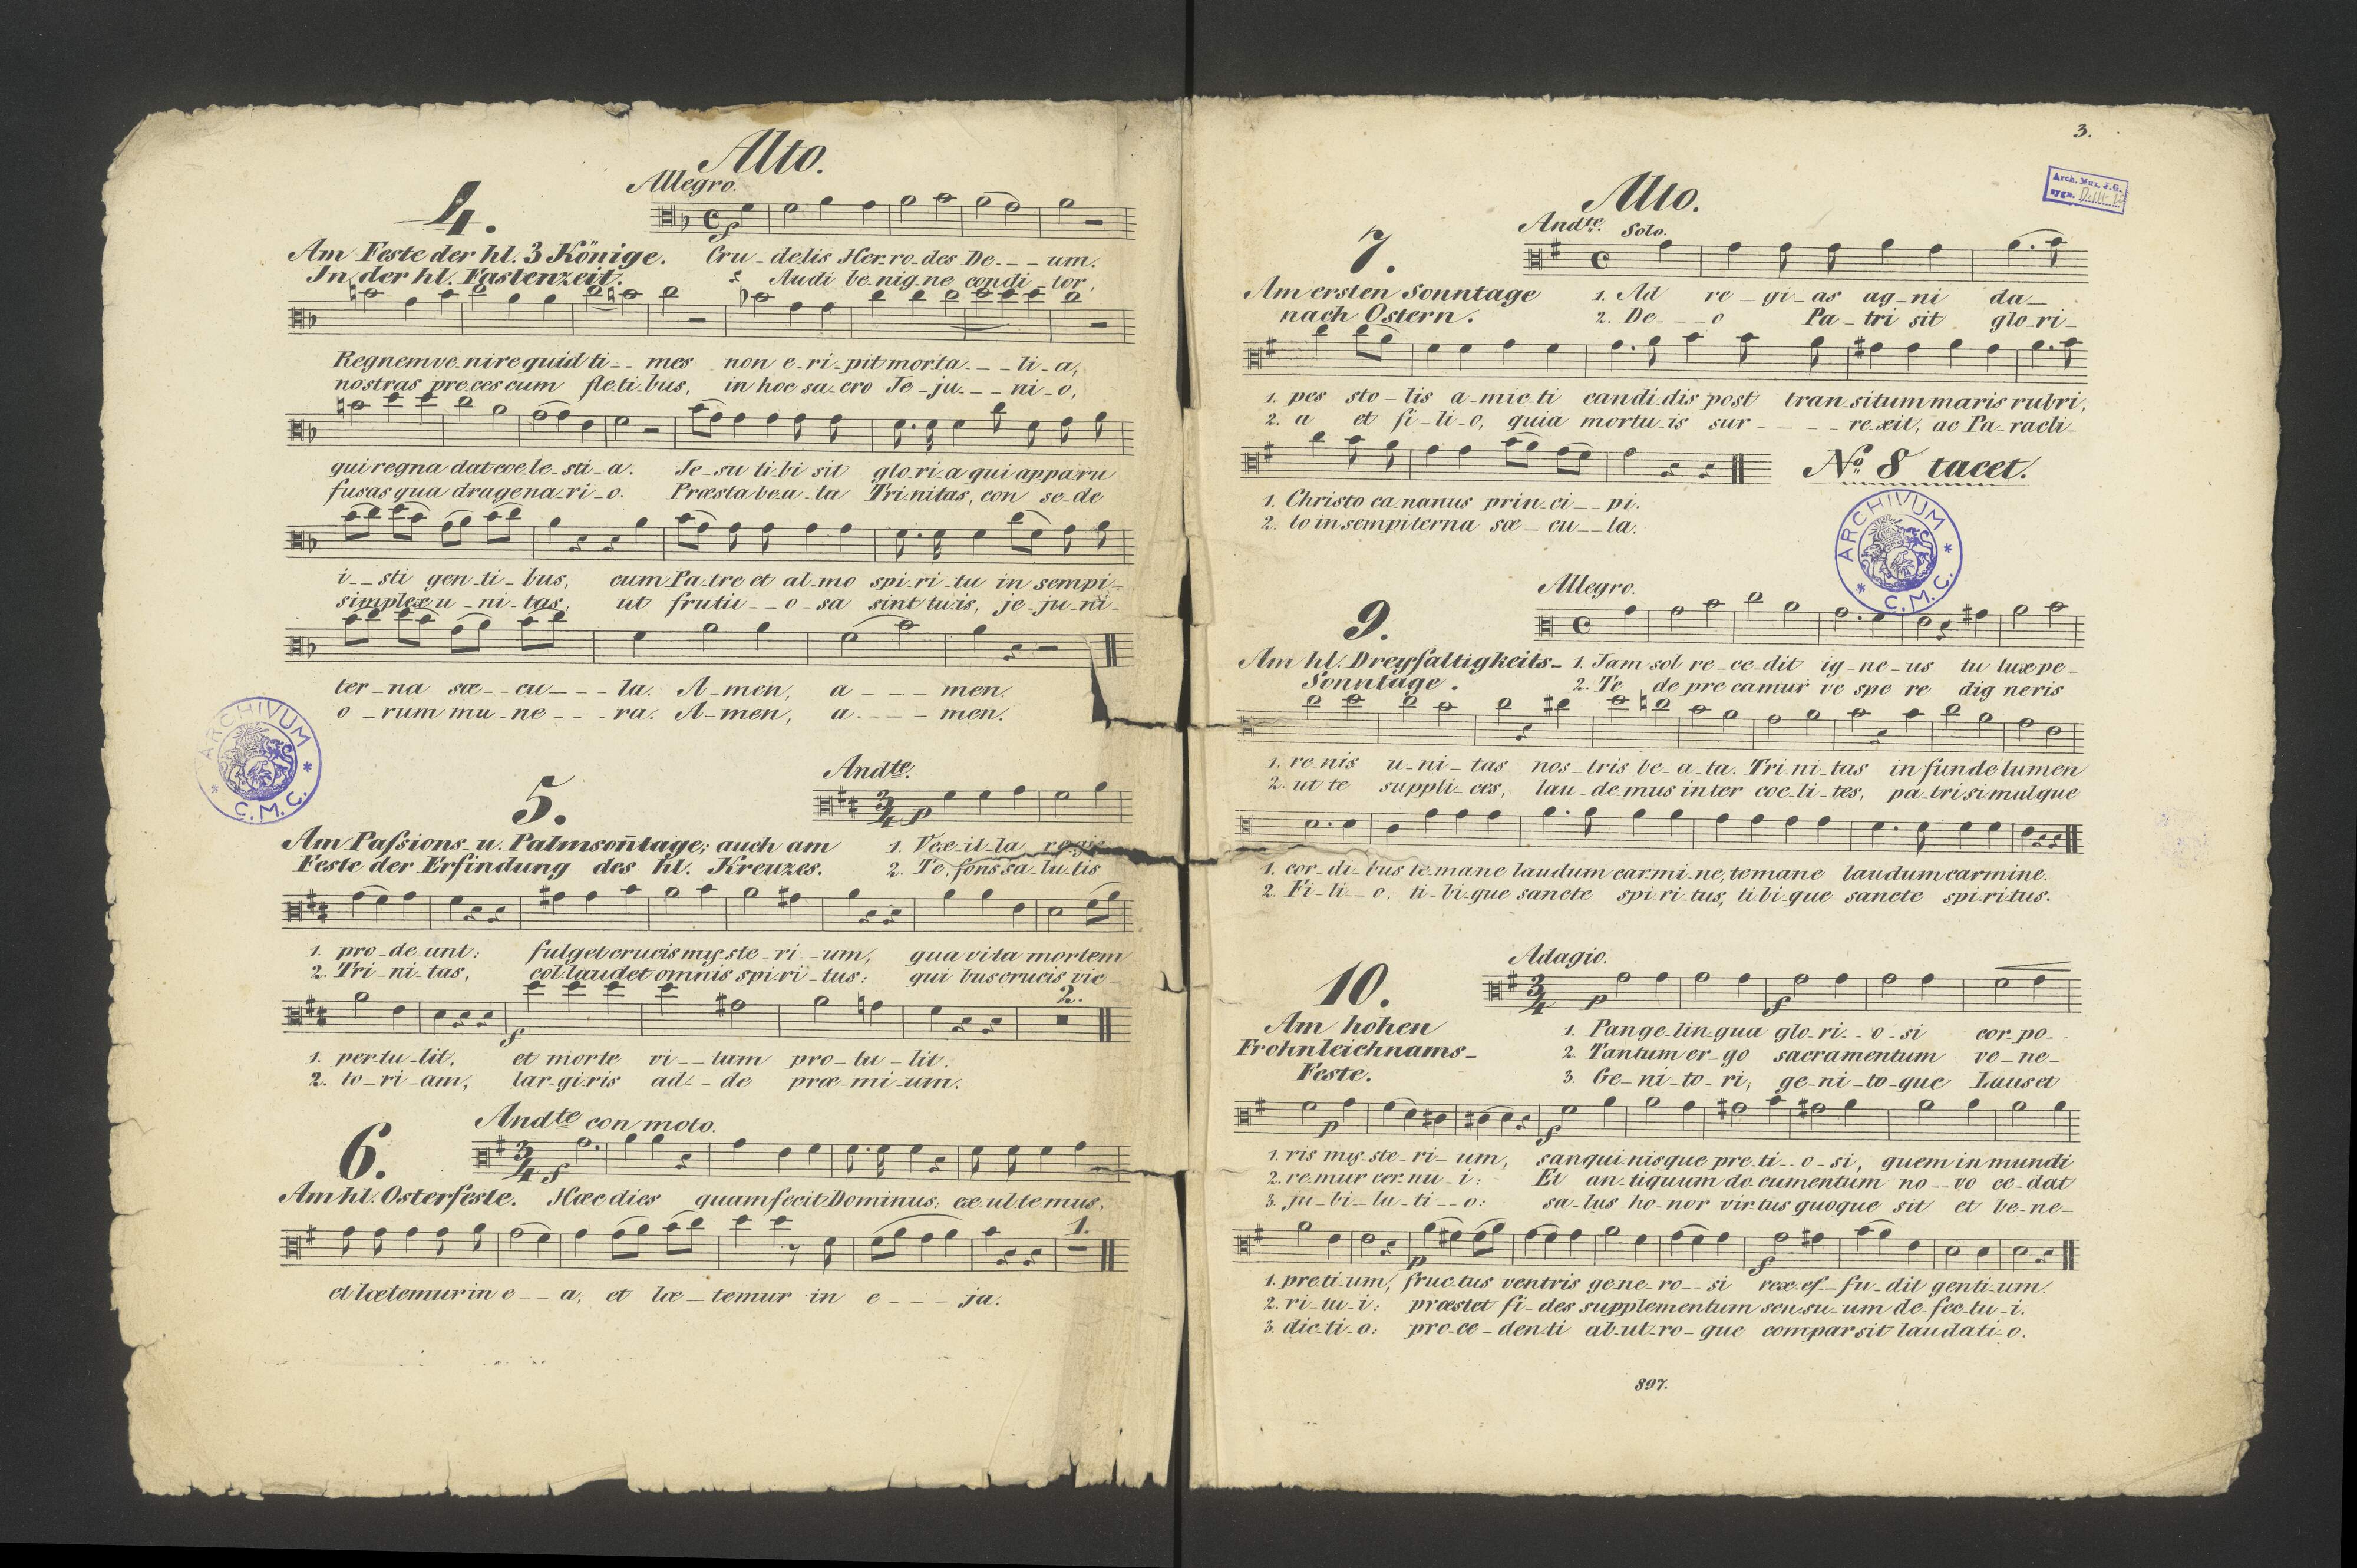 Alto.
Allegro.
4.
Am Feste der hl. 3 Könige.
In der hl. Fastenzeit.
Cru_delis Her_ro_des De_ _ _ um.
Audi be_nig_ne condi_tor,
Regnem ve_nire quid ti_ _ mes non e_ri_pit mor_ta_ _ _ li_a,
nostras pre_ces cum fle_ti_bus, in hoc sa_cro Je_ju_ _ _ ni_o,
qui regna dat coe_le_sti_a. Je_su ti_bi sit glo_ri_a qui ap_pa_ru
fusas qua dragena_ri_o. Præsta be_a_ta Tri_nitas, con se_de
i_ _ sti gen_ti_bus, cum Pa_tre et al_mo spi_ri_tu in sempi_
simplex u_ni_tas, ut frutu_ _ o_sa sint tu_is, je_ju_ni_
ter_na sæ_ _ cu_ _ _ la. A_men, a_ _ _ men.
o_rum mu_ne_ _ _ ra. A_men, a_ _ _ _ men.
Andte.
5.
Am Paſsions_ u. Palmsoñtage; auch am
Feste der Erfindung des hl. Kreuzes.
1. Vex_il_la regis
2. Te, fons sa_lu_tis
1. pro_de_unt: fulget crucis my_ste_ri_ _um, qua vita mortem
2. Tri_ni_tas, col_laudet omnis spi_ri_tus: qui bus crucis vic_
2.
1. per_tu_lit, et morte vi_ _ tam pro_tu_lit.
2. to_ri_am, lar_gi_ris ad_ _ de præ_mi_um.
Andte con moto.
6.
Am hl. Osterfeste. Hæc dies quam fecit Dominus: ex_ul_te_mus,
1.
et lætemur in e_ _ a, et læ_temur in e_ _ _ ja.
3.
Arch. Muz. J.G.
sygn.
Alto.
Andte. Solo.
7.
Am ersten Sonntage
nach Ostern.
1. Ad re_gi_as ag_ni da_
2. De_ _ _o Pa_tri sit glo_ri_
1. pes sto_lis a_mic_ti candi_dis post tran_situm maris rubri,
2. a et fi_li_o, quia mortu_is sur_ _ _ _ re_xit, ac Pa_racli_
No. 8 tacet.
1. Christo ca_nanus prin_ci_ _ pi.
2. to in sempiterna sæ_cu_ _la.
ARCHIVUM * C.M.C. *
Allegro.
9.
Am hl. Dreyfaltigkeits_
Sonntage.
1. Jam sol re_ce_dit ig_ne_us tu lux pe_
2. Te de pre camur ve spe re dig neris
1. re_nis u_ni_tas nos_tris be_a_ta. Tri_ni_tas in funde lumen
2. ut te suppli_ces, lau_de_mus inter coe_li_tes, pa_tri simul que
1. cor_di_bus te mane laudum carmi_ne, te mane laudum carmine.
2. Fi_li_ _o, ti_bi_que sancte spi_ri_tus, ti_bi_que sancte spi_ri_tus.
Adagio.
10.
Am hohen
Frohnleichnams_
Feste.
1. Pange lin_gua glo_ri_ _o_si cor_po_
2. Tantum er_go sacramentum ve_ne_
3. Ge_ni_to_ri, ge_ni_to_que Laus et
1. ris my_ste_ri_um, sanqui_nisque pre_ti_ _o_si, quem in mundi
2. re_mur cer_nu_i: Et an_tiquum do_cumentum no_ _vo ce_dat
3. ju_bi_la_ti_ _o: sa_lus ho_nor vir_tus quoque sit et be_ne_
1. pre_ti_um, fruc_tus ventris ge_ne_ro_ _si rex ef_fu_dit genti_um.
2. ri_tu_i: præstet fi_des supplementum sen_su_um de_fec_tu_i.
3. dic_ti_o: pro_ce_den_ti ab ut_ro_que compar sit laudati_o.
897.
ARCHIVUM * C.M.C. *